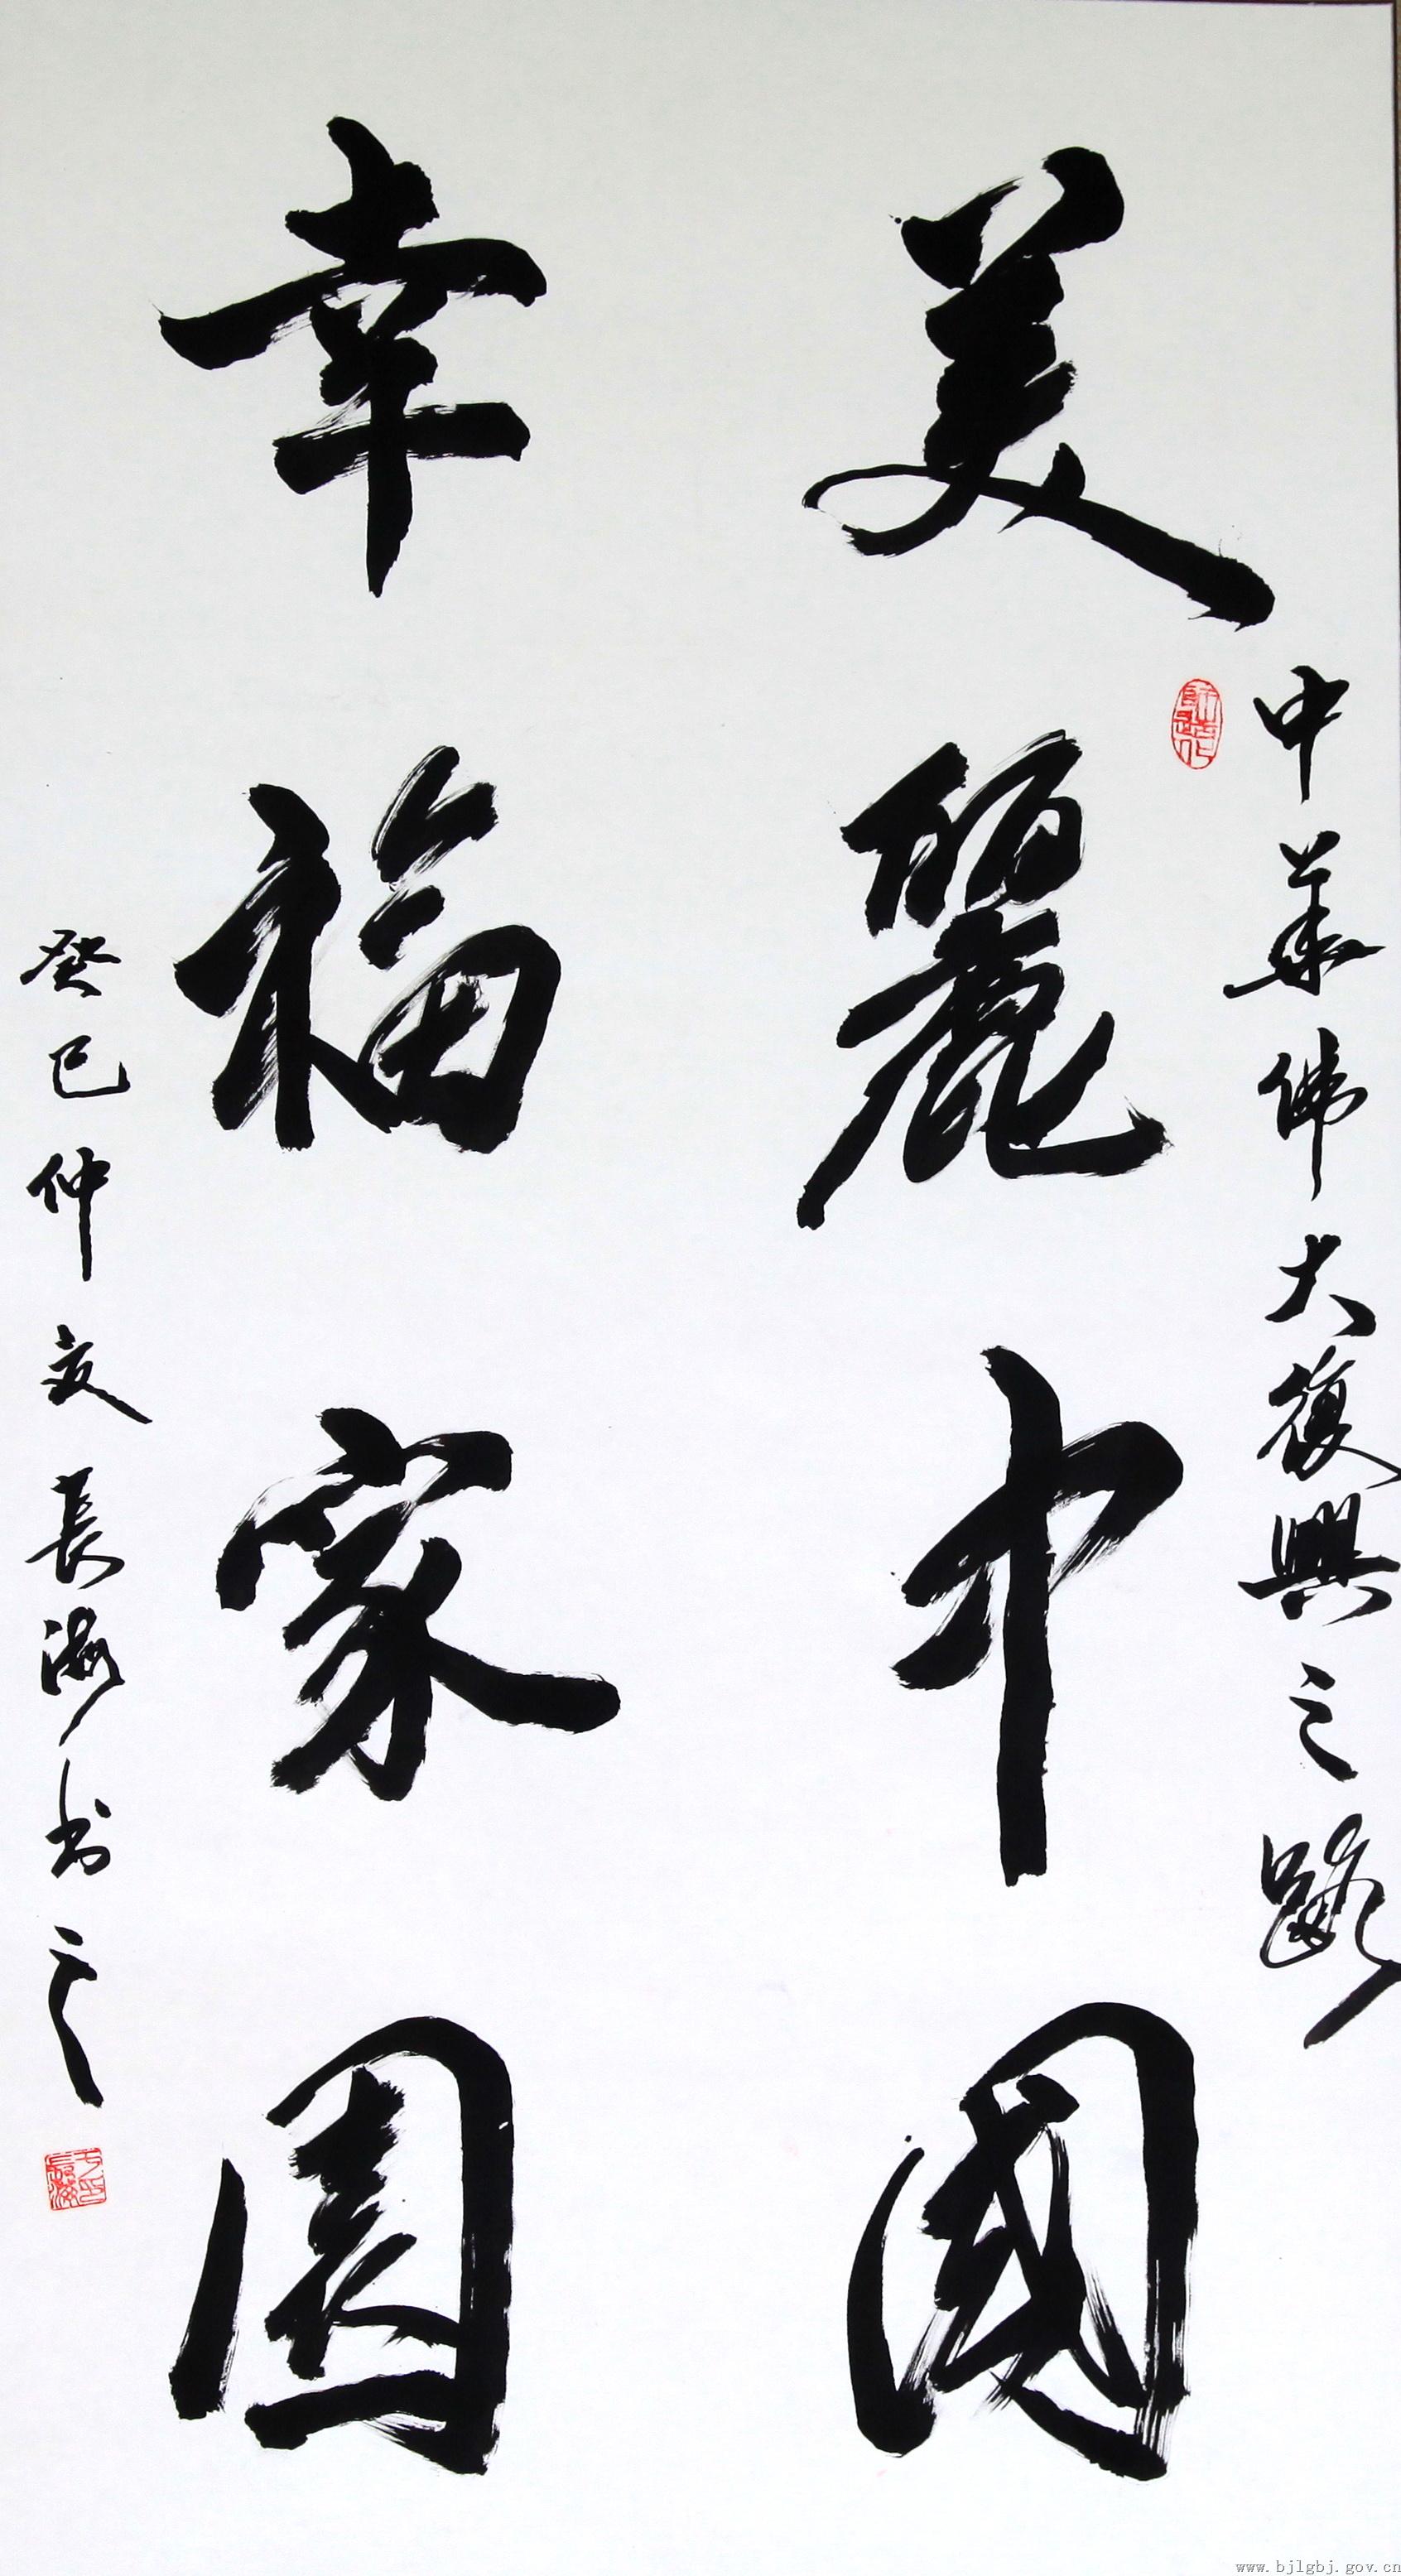 中華偉大復興之路
美麗中國
幸福家園
癸巳仲夏長海书之
www.bjlgbj.gov.cn